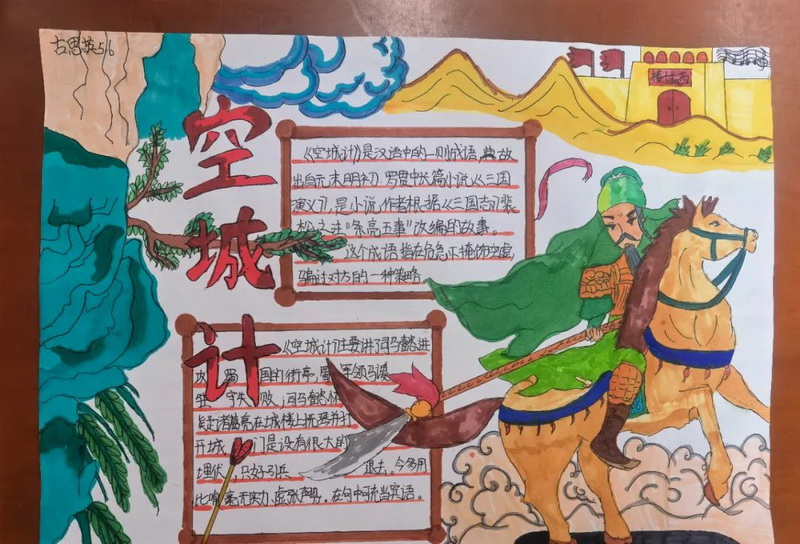 古思莹5.6
西城楼
空城计
《空城计》是汉语中的一则成语,典故
出自元末明初,罗贯中长篇小说《三国
演义》,是小说作者根据《三国志》裴
松之注"条亮五事"改编的故事。
这个成语指在危急正掩饰空虚,
骗过对方的一种策略
《空城计》主要讲了司马懿进
攻 蜀 国的街亭,蜀 军领马谡
守失 败,司马懿
诸葛亮在城楼上抚琴并打
开城 门是设有很大的
埋伏,只好引兵 退去。今多用
比喻毫无实力,虚张声势。在句中可充当宾语。